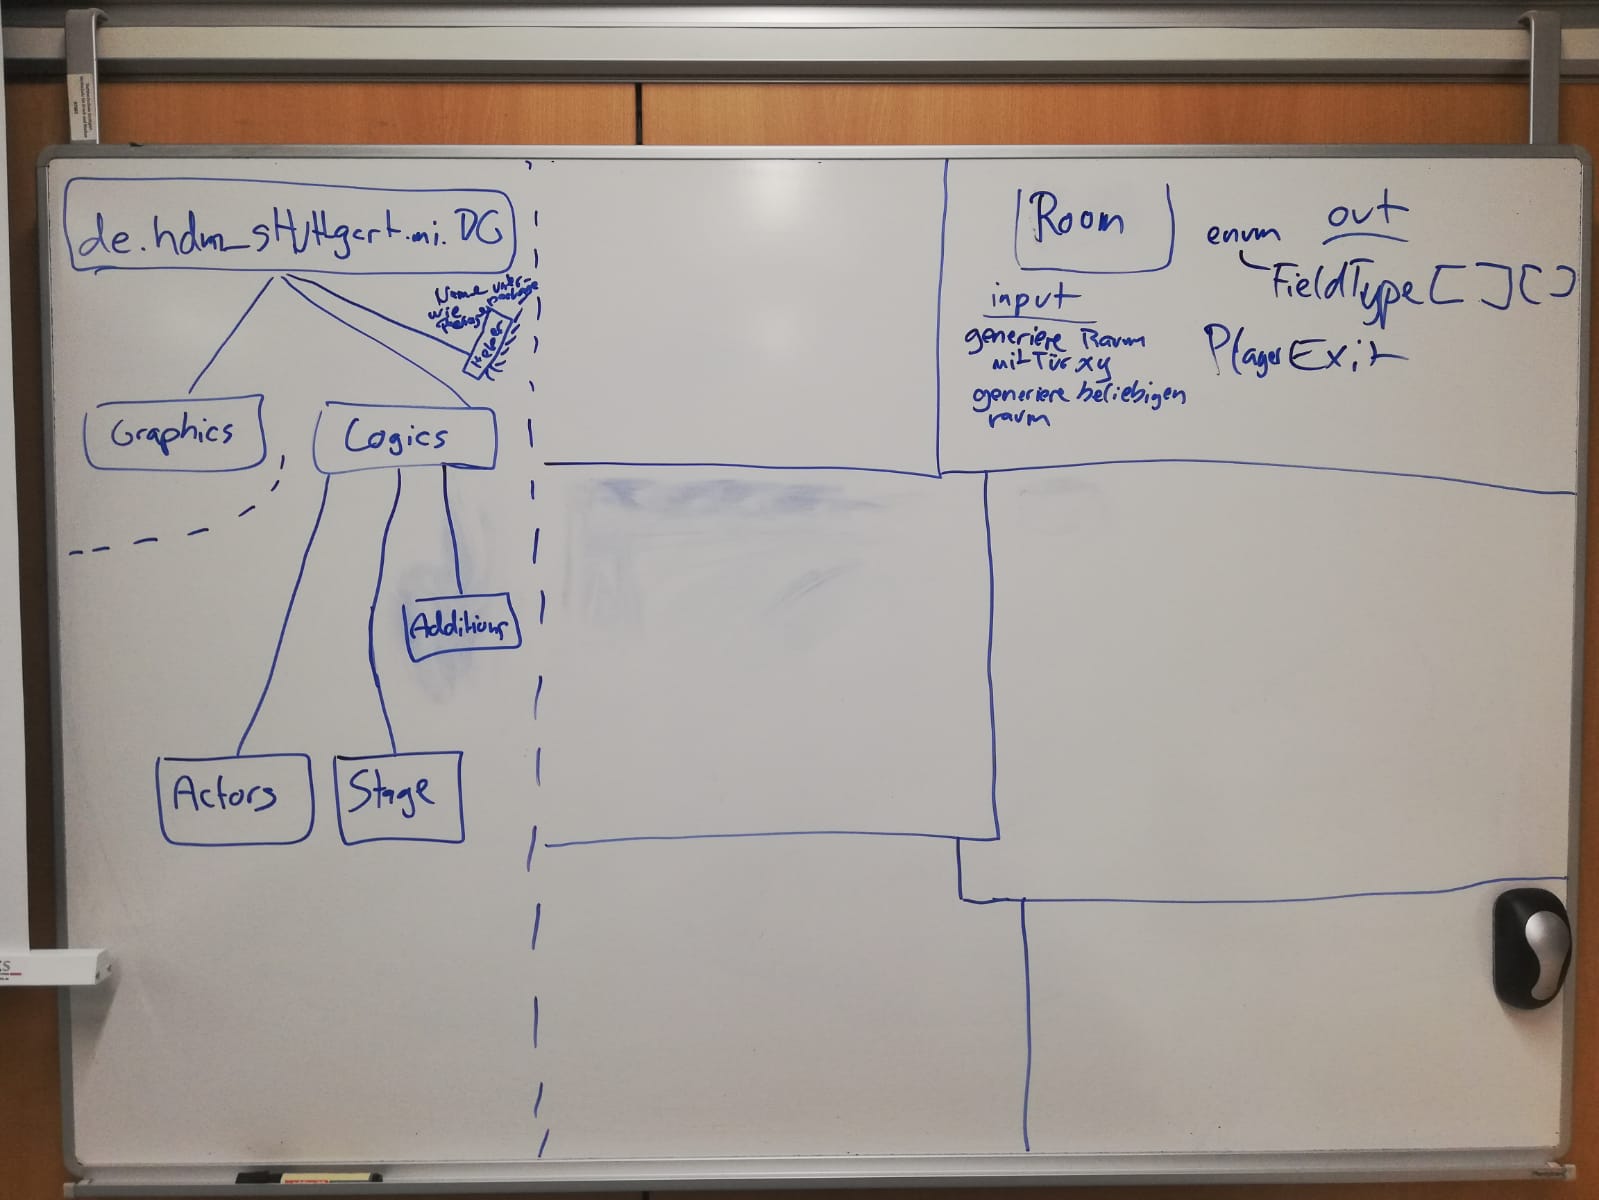 de.hdm_stuttgart.mi.DG
Name unter-
wie package
Helper
Graphics
Logics
Additions
Actors
Stage
Room
input
generiere Raum
mit Tür xy
generiere beliebigen
raum
out
enum
FieldType[][]
PlayerExit